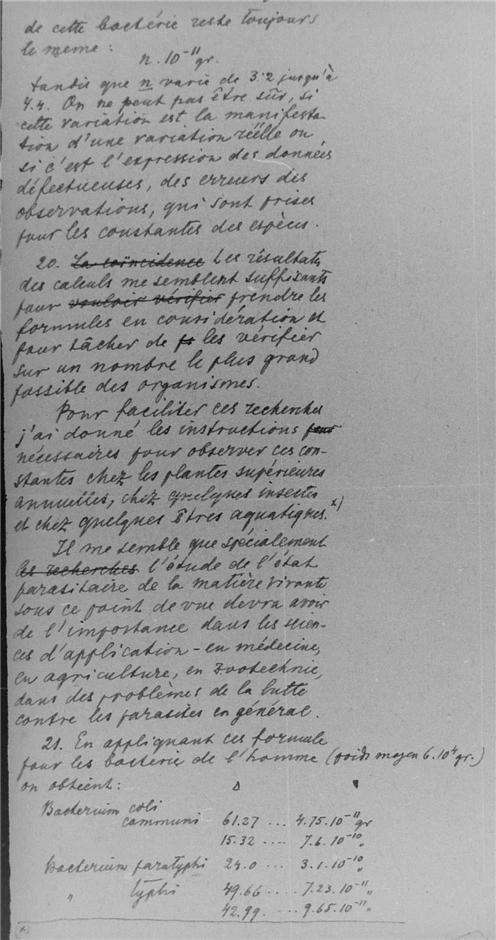 de cette bactérie reste toujours
le meme :
n. 10⁻¹¹ gr.
tandis que n varie de 3.2 jusqu'à
4.4. On ne peut pas être sûr, si
cette variation est la manifesta-
tion d'une variation réelle ou
si c'est l'expression des données
défectueuses, des erreurs des
observations, qui sont prises
pour les constantes des espèces.
20. La coïncidence Les résultats
des calculs me semblent suffisants
pour vouloir vérifier prendre les
formules en considération et
pour tâcher de les vérifier
sur un nombre le plus grand
possible des organismes.
Pour faciliter ces recherches
j'ai donné les instructions pour
nécessaires pour observer ces con-
stantes chez les plantes supérieures
annuelles, chez quelques insectes
et chez quelques êtres aquatiques. x)
Il me semble que spécialement
les recherches l'étude de l'état
parasitaire de la matière vivante
sous ce point de vue devra avoir
de l'importance dans les scien-
ces d'application - en médecine,
en agriculture, en zootechnie,
dans des problèmes de la lutte
contre les parasites en général.
21. En appliquant ces formule
pour les bacterie de l'homme (poids moyen 6.10⁴ gr.)
on obteint :
Δ
Bacterium coli
communi 61.27 ... 4.75.10⁻¹¹ gr
15.32 ... 7.6.10⁻¹⁰ „
Bacterium paratyphi 24.0 ... 3.1.10⁻¹⁰ „
„ typhi 49.66 ... 7.23.10⁻¹¹ „
42.99. ... 9.65.10⁻¹¹ „